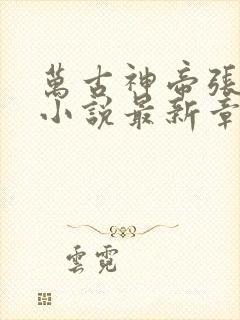 萬古神帝張
小說最新章
雲霓